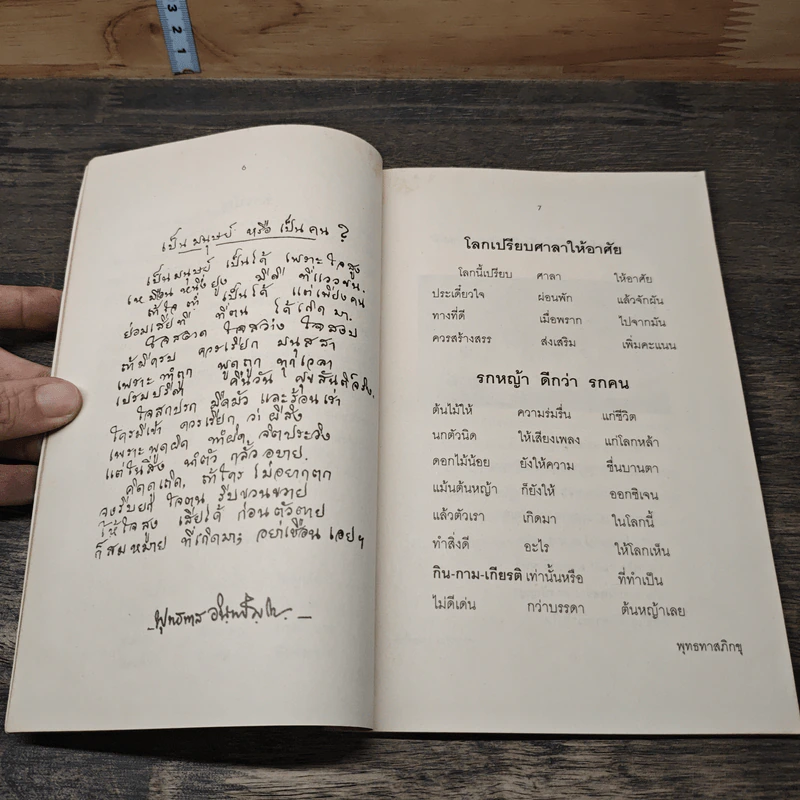 3
2
1
๖
เป็นมนุษย์ หรือ เป็นคน ?
เป็นมนุษย์ เป็นได้ เพราะใจสูง
เหมือนหนึ่งยูง มีดี ที่แววขน
ถ้าใจต่ำ เป็นได้ แต่เพียงคน
ย่อมเสียที ที่ตน ได้เกิดมา.
ใจสอาด ใจสว่าง ใจสงบ
ถ้ามีครบ ควรเรียก มนุสสา
เพราะทำถูก พูดถูก ทุกเวลา
เปรมปรีดา คืนวัน ศุขสันต์จริง.
ใจสกปรก มืดมัว และร้อนเร่า
ใครมีเข้า ควรเรียก ว่าผีสิง
เพราะพูดผิด ทำผิด จิตประวิง
แต่ในสิ่ง นำตัว กลั้วอบาย.
คิดดูเถิด ถ้าใคร ไม่อยากตก
จงรีบยก ใจตน รีบขวนขวาย
ให้ใจสูง เสียได้ ก่อนตัวตาย
ก็สมหมาย ที่เกิดมา; อย่าเชือน เอยฯ
พุทธทาส อินทปัญโญ.
7
โลกเปรียบศาลาให้อาศัย
โลกนี้เปรียบ ศาลา ให้อาศัย
ประเดี๋ยวใจ ผ่อนพัก แล้วจักผัน
ทางที่ดี เมื่อพราก ไปจากมัน
ควรสร้างสรร ส่งเสริม เพิ่มคะแนน
รกหญ้า ดีกว่า รกคน
ต้นไม้ให้ ความร่มรื่น แก่ชีวิต
นกตัวนิด ให้เสียงเพลง แก่โลกหล้า
ดอกไม้น้อย ยังให้ความ ชื่นบานตา
แม้นต้นหญ้า ก็ยังให้ ออกซิเจน
แล้วตัวเรา เกิดมา ในโลกนี้
ทำสิ่งดี อะไร ให้โลกเห็น
กิน-กาม-เกียรติ เท่านั้นหรือ ที่ทำเป็น
ไม่ดีเด่น กว่าบรรดา ต้นหญ้าเลย
พุทธทาสภิกขุ